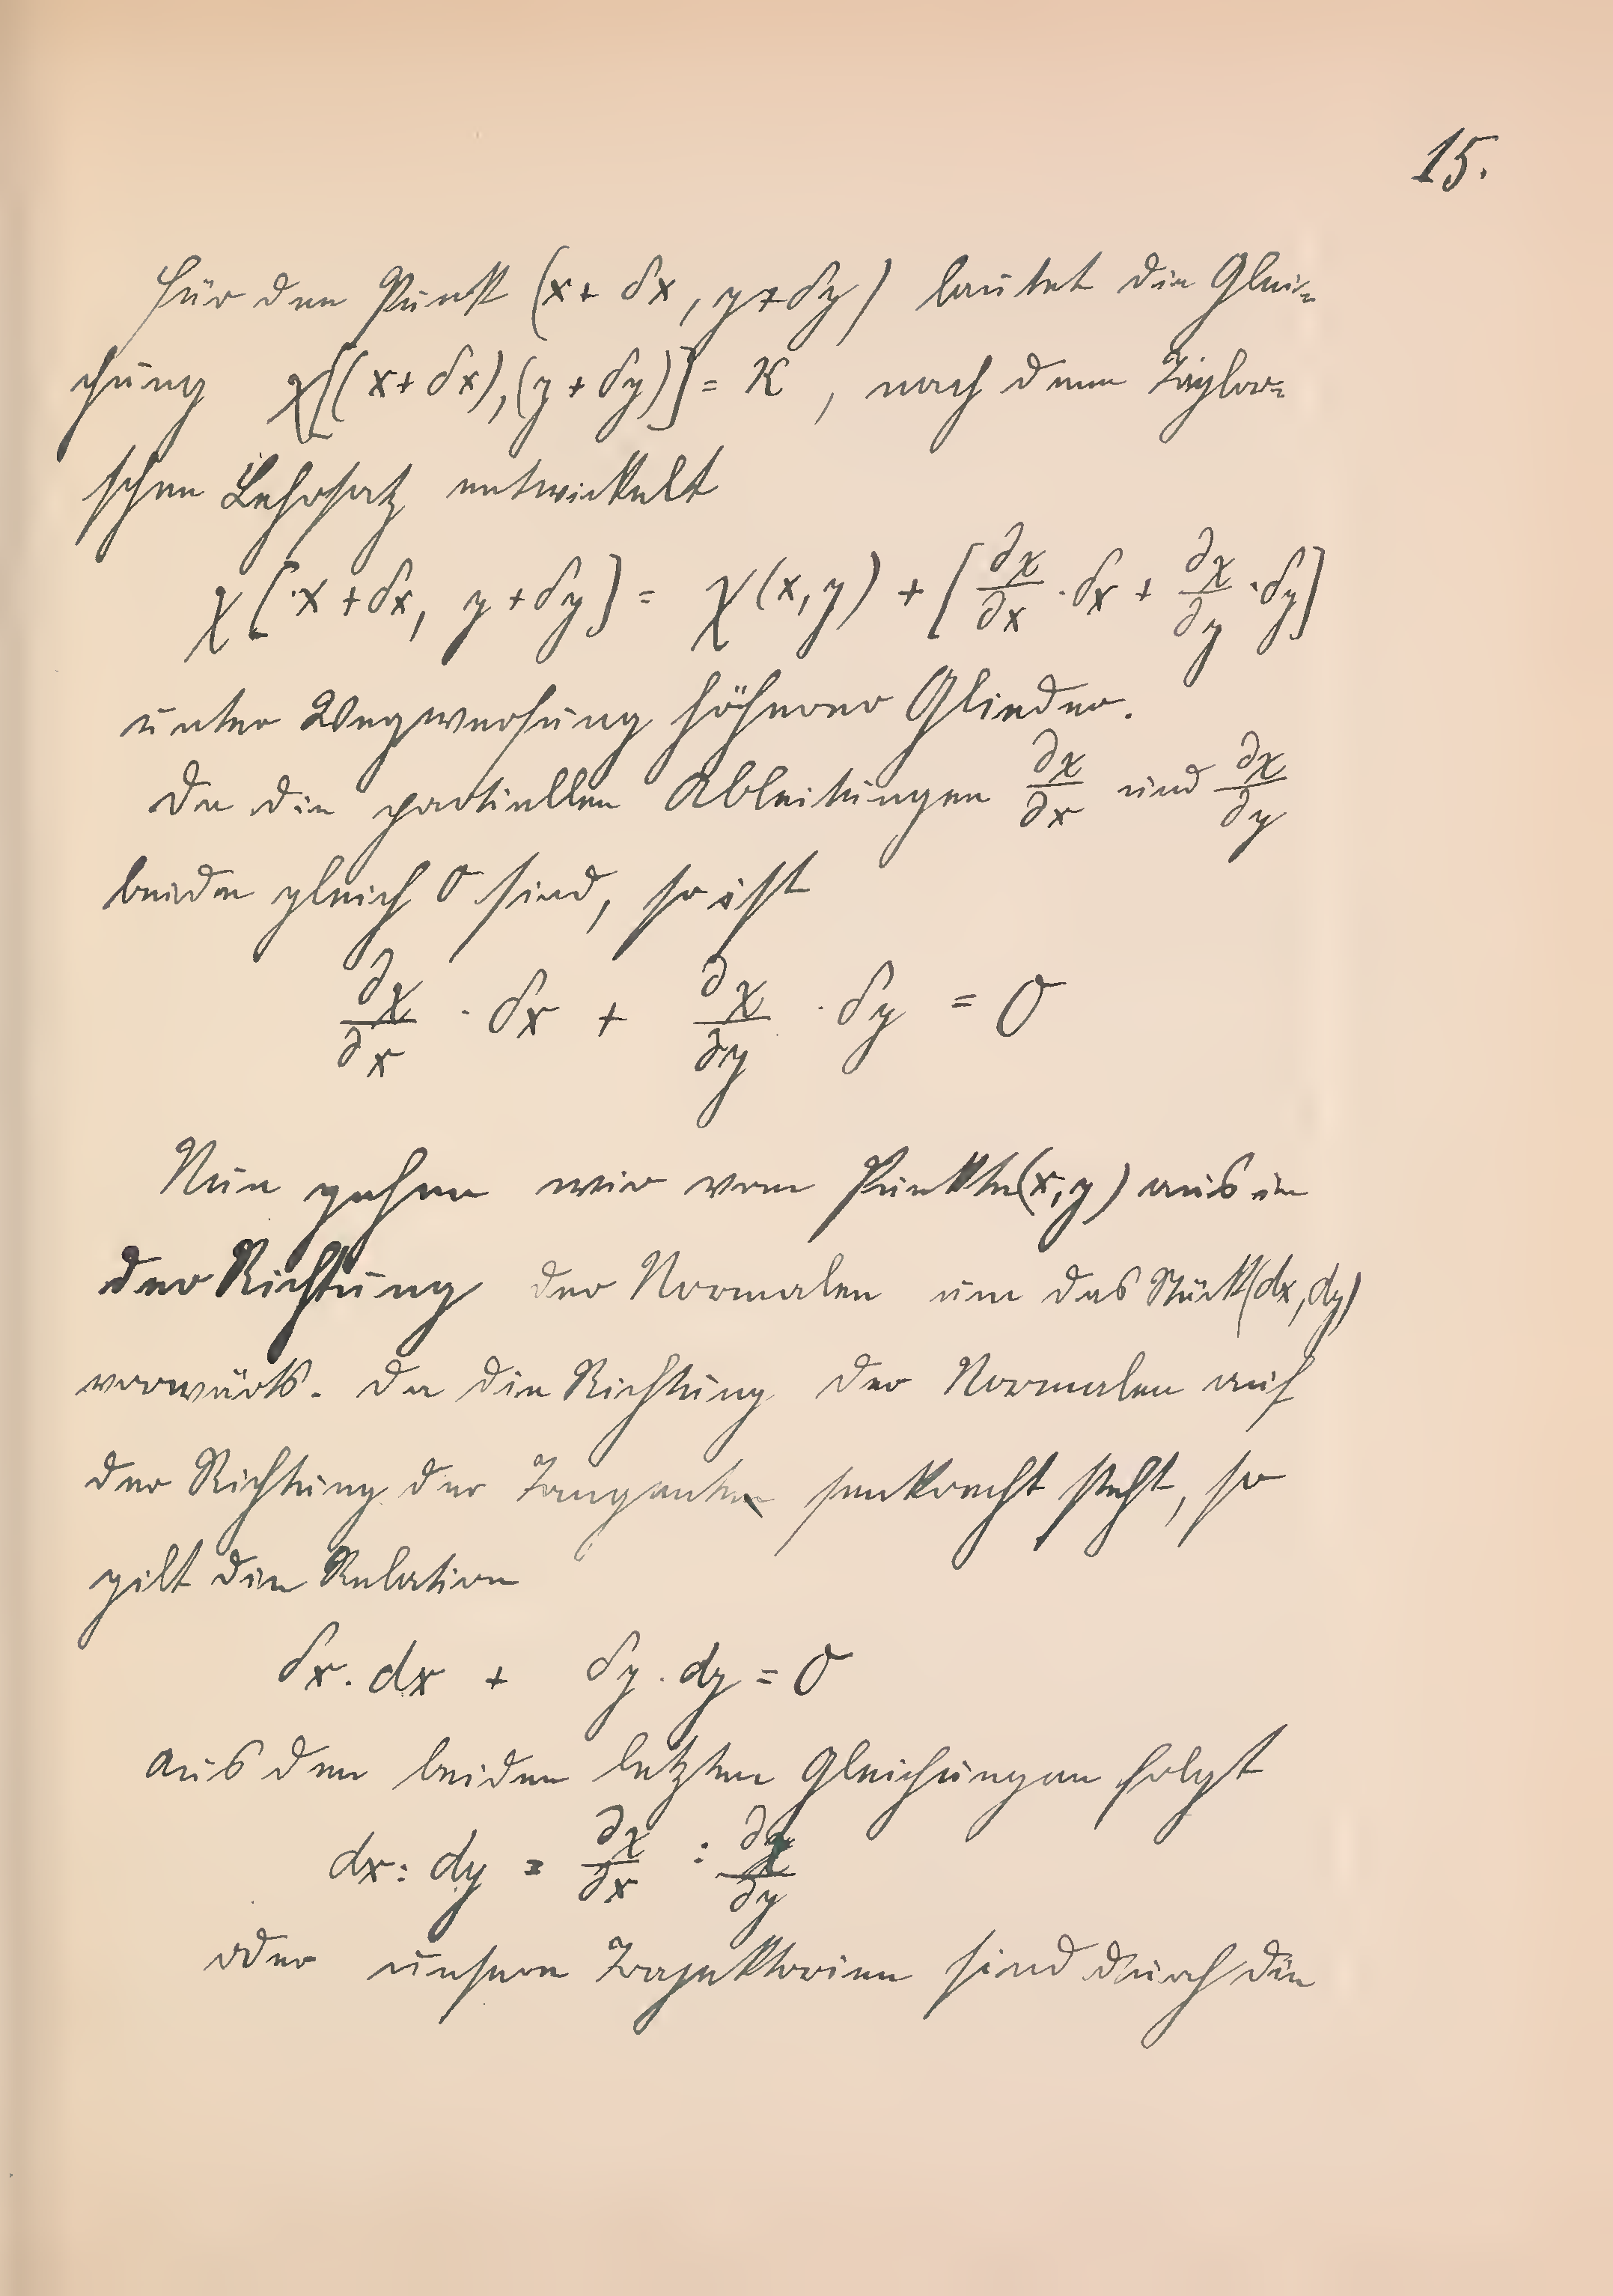 15.
für den Punkt (x + δx, y + δy) lautet die Glei-
chung χ[(x + δx), (y + δy)] = K, nach dem Taylor-
schen Lehrsatz entwickelt
χ[x + δx, y + δy] = χ(x, y) + [∂χ/∂x · δx + ∂χ/∂y · δy]
unter Wegwerfung höherer Glieder.
Da die partiellen Ableitungen ∂χ/∂x und ∂χ/∂y
beide gleich 0 sind, so ist
∂χ/∂x · δx + ∂χ/∂y · δy = 0
Nun gehen wir vom Punkte (x, y) aus in
der Richtung der Normalen um das Stück (dx, dy)
vorwärts. Da die Richtung der Normalen auf
der Richtung der Tangenten senkrecht steht, so
gilt die Relation
δx . dx + δy . dy = 0
aus den beiden letzten Gleichungen folgt
dx : dy = ∂χ/∂x : ∂χ/∂y
oder unsere Trajektorien sind durch die